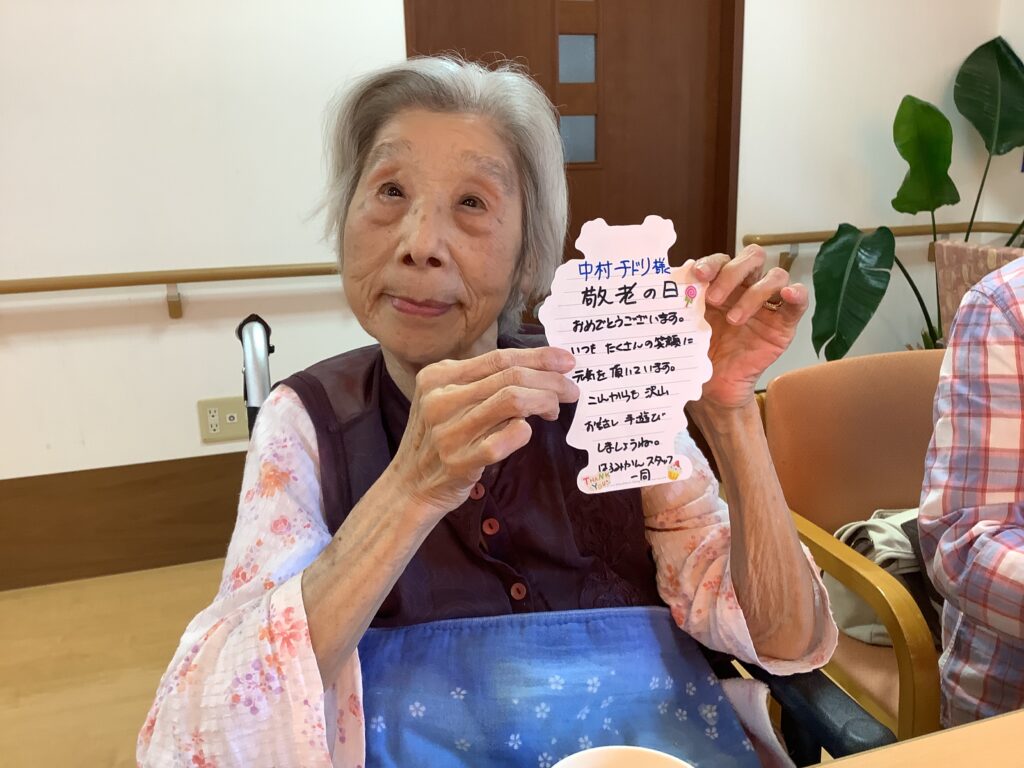 中村チドリ様
敬老の日
おめでとうございます。
いつも たくさんの笑顔に
元気を頂いています。
これからも 沢山
おはなし 手遊び
しましょうね。
はるみかん スタッフ
一同
THANK
YOU